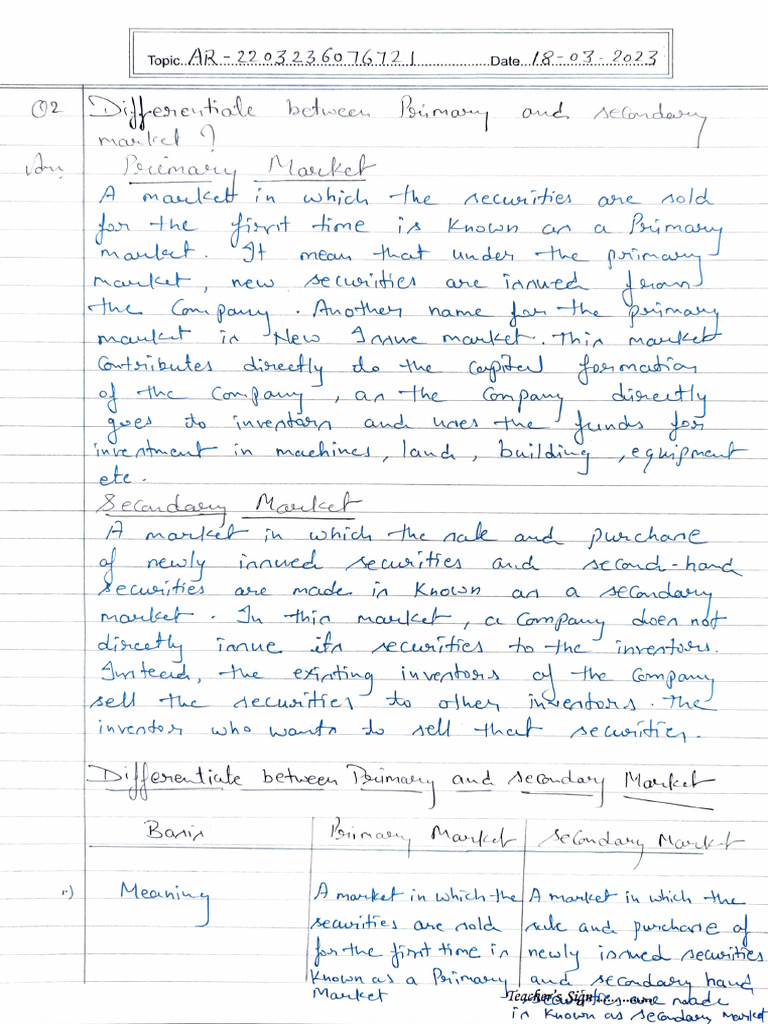 Topic..AR-2203236076721..................Date..18-03-2023
Q2 Differentiate between Primary and secondary
market ?
Ans Primary Market
A market in which the securities are sold
for the first time is known as a Primary
market. It mean that under the primary
market, new securities are issued from
the Company. Another name for the primary
market is New Issue market. This market
Contributes directly to the capital formation
of the Company, as the Company directly
goes to investors and uses the funds for
investment in machines, land, building, equipment
etc.
Secondary Market
A market in which the sale and purchase
of newly issued securities and second-hand
securities are made is known as a secondary
market. In this market, a Company does not
directly issue its securities to the investors.
Instead, the existing investors of the Company
sell the securities to other investors. The
investor who wants to sell that securities.
Differentiate between Primary and secondary Market
Basis Primary Market Secondary Market
Meaning A market in which the A market in which the
securities are sold sale and purchase of
for the first time is newly issued securities
known as a Primary and secondary hand
Market Teacher's Sign securities are made
is known as secondary market